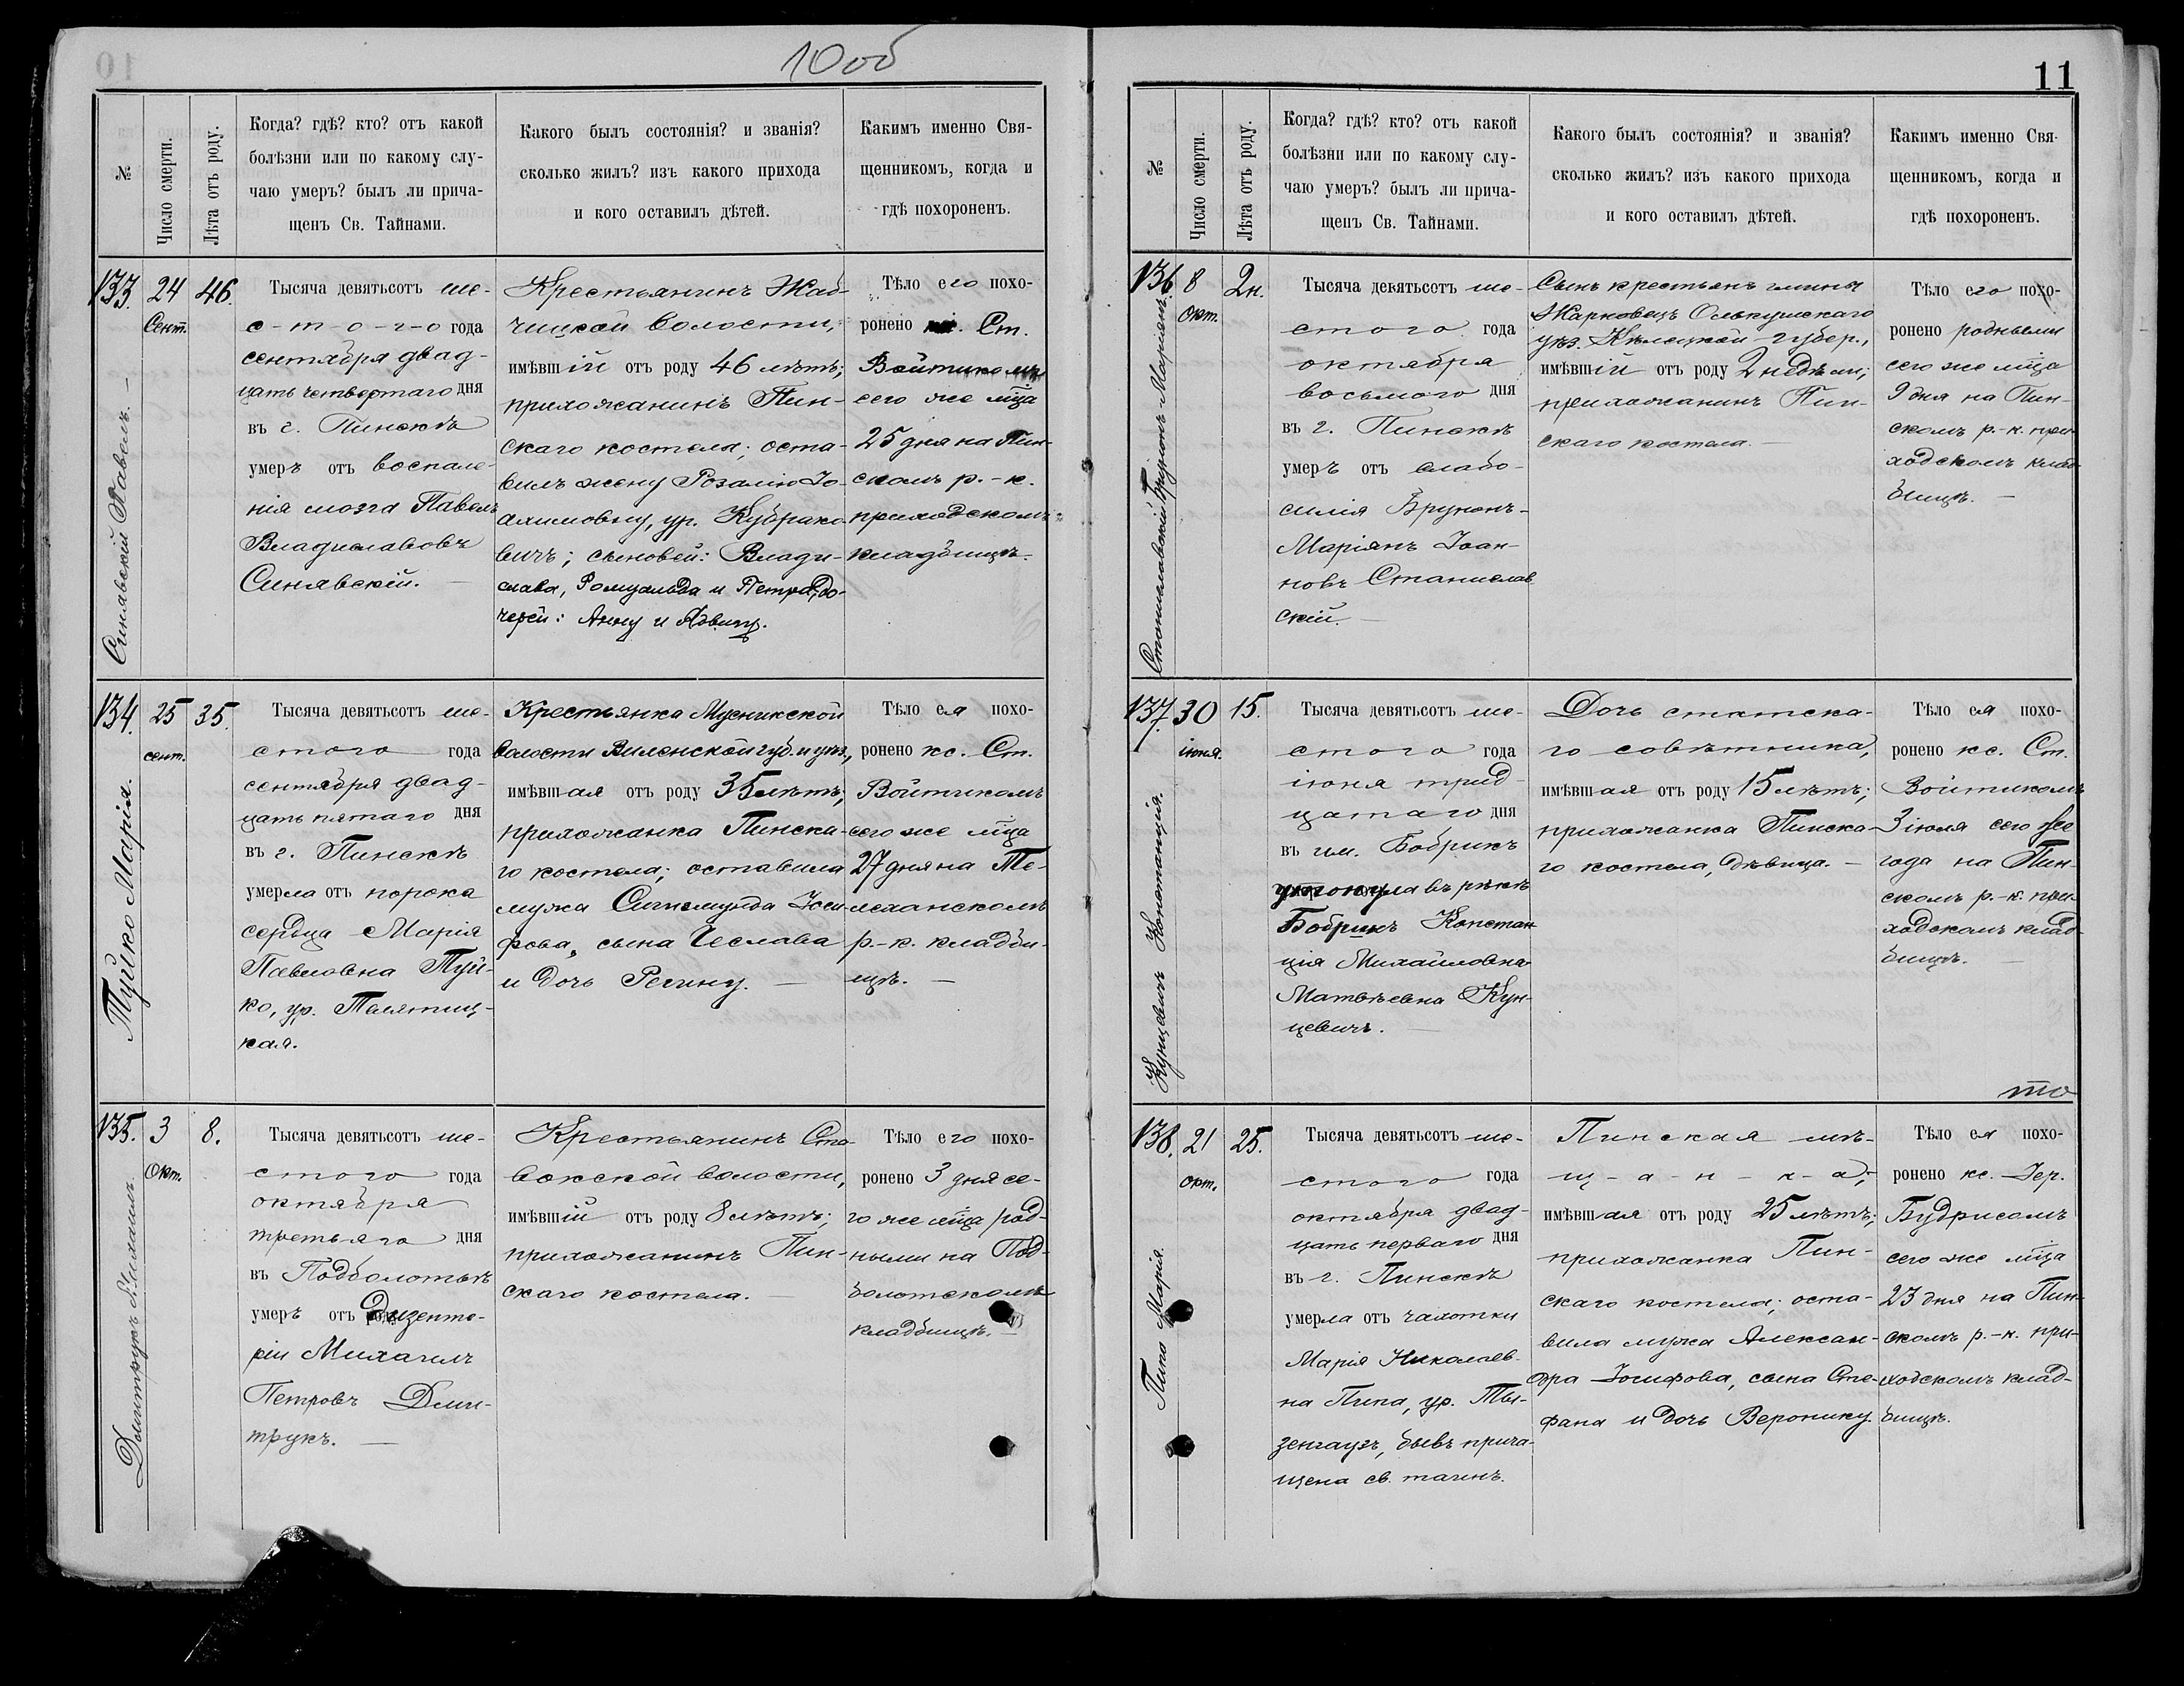 10об
10
№
Число смерти.
Лѣта отъ роду.
Когда? гдѣ? кто? отъ какой
болѣзни или по какому слу-
чаю умеръ? былъ ли прича-
щенъ Св. Тайнами.
Какого былъ состоянія? и званія?
сколько жилъ? изъ какого прихода
и кого оставилъ дѣтей.
Какимъ именно Свя-
щенникомъ, когда и
гдѣ похороненъ.
133.
Синявскій Павелъ. —
24
Сент.
46.
Тысяча девятьсотъ ше-
с-т-о-г-о года
сентября двад-
цать четвертаго дня
въ г. Пинскѣ
умеръ отъ воспале-
нія мозга Павелъ
Владиславовъ
Синявскій. —
Крестьянинъ Жаб-
чицкой волости,
имѣвшій отъ роду 46 лѣтъ;
прихожанинъ Пин-
скаго костела; оста-
вилъ жену Розалію Іо-
ахимовну, ур. Кубрако-
вичъ; сыновей: Влади-
слава, Ромуальда и Петра, до-
черей: Анну и Ядвигу.
Тѣло его похо-
ронено кс. Ст.
Войтикомъ
сего же мѣца
25 дня на Пин-
скомъ р.-к.
приходскомъ
кладбищѣ.
134.
Туйко Марія.
25
сент.
35.
Тысяча девятьсотъ ше-
стого года
сентября двад-
цать пятаго дня
въ г. Пинскѣ
умерла отъ порока
сердца Марія
Павловна Туй-
ко, ур. Телятиц-
кая.
Крестьянка Мусникской
волости Виленской губ. и уѣз.,
имѣвшая отъ роду 35 лѣтъ;
прихожанка Пинска-
го костела; оставила
мужа Сигизмунда Іоси-
фова, сына Чеслава
и дочь Регину. —
Тѣло ея похо-
ронено кс. Ст.
Войтикомъ
сего же мѣца
27 дня на Те-
леханскомъ
р.-к. кладби-
щѣ. —
135.
Дмитрукъ Михаилъ.
3
Окт.
8.
Тысяча девятьсотъ ше-
стого года
октября
третьяго дня
въ Подболотьѣ
умеръ отъ дизенте-
ріи Михаилъ
Петровъ Дми-
трукъ. —
Крестьянинъ Ста-
вокской волости,
имѣвшій отъ роду 8 лѣтъ;
прихожанинъ Пин-
скаго костела. —
Тѣло его похо-
ронено 3 дня се-
го же мѣца род-
ными на Под-
болотскомъ
кладбищѣ. —
11
№
Число смерти.
Лѣта отъ роду.
Когда? гдѣ? кто? отъ какой
болѣзни или по какому слу-
чаю умеръ? былъ ли прича-
щенъ Св. Тайнами.
Какого былъ состоянія? и званія?
сколько жилъ? изъ какого прихода
и кого оставилъ дѣтей.
Какимъ именно Свя-
щенникомъ, когда и
гдѣ похороненъ.
136.
Станиславскій Брунонъ-Маріянъ.
8
окт.
2н.
Тысяча девятьсотъ ше-
стого года
октября
восьмого дня
въ г. Пинскѣ
умеръ отъ слабо-
силія Брунонъ-
Маріянъ Іоан-
новъ Станислав-
скій. —
Сынъ крестьянъ гмины
Жарновецъ Олькушскаго
уѣз. Кѣлецкой губер.,
имѣвшій отъ роду 2 недѣли;
прихожанинъ Пин-
скаго костела. —
Тѣло его похо-
ронено родными
сего же мѣца
9 дня на Пин-
скомъ р.-к. при-
ходскомъ клад-
бищѣ. —
137.
Кунцевичъ Констанція.
30
іюня.
15.
Тысяча девятьсотъ ше-
стого года
іюня трид-
цатаго дня
въ им. Бобрикъ
утонула въ рѣкѣ
Бобрикъ Констан-
ція Михайловна
Матвѣевна Кун-
цевичъ. —
Дочь статска-
го совѣтника,
имѣвшая отъ роду 15 лѣтъ;
прихожанка Пинска-
го костела, дѣвица. —
Тѣло ея похо-
ронено кс. Ст.
Войтикомъ
3 іюля сего же
года на Пин-
скомъ р.-к. при-
ходскомъ клад-
бищѣ. —
138.
Пипа Марія.
21
окт.
25.
Тысяча девятьсотъ ше-
стого года
октября двад-
цать перваго дня
въ г. Пинскѣ
умерла отъ чахотки
Марія Николаев-
на Пипа, ур. Ты-
зенгаузъ, бывъ прича-
щена св. таинъ.
Пинская мѣ-
щ-а-н-к-а;
имѣвшая отъ роду 25 лѣтъ;
прихожанка Пин-
скаго костела; оста-
вила мужа Алексан-
дра Іосифова, сына Сте-
фана и дочь Веронику.
Тѣло ея похо-
ронено кс. Іер.
Будрисомъ
сего же мѣца
23 дня на Пин-
скомъ р.-к. при-
ходскомъ клад-
бищѣ.